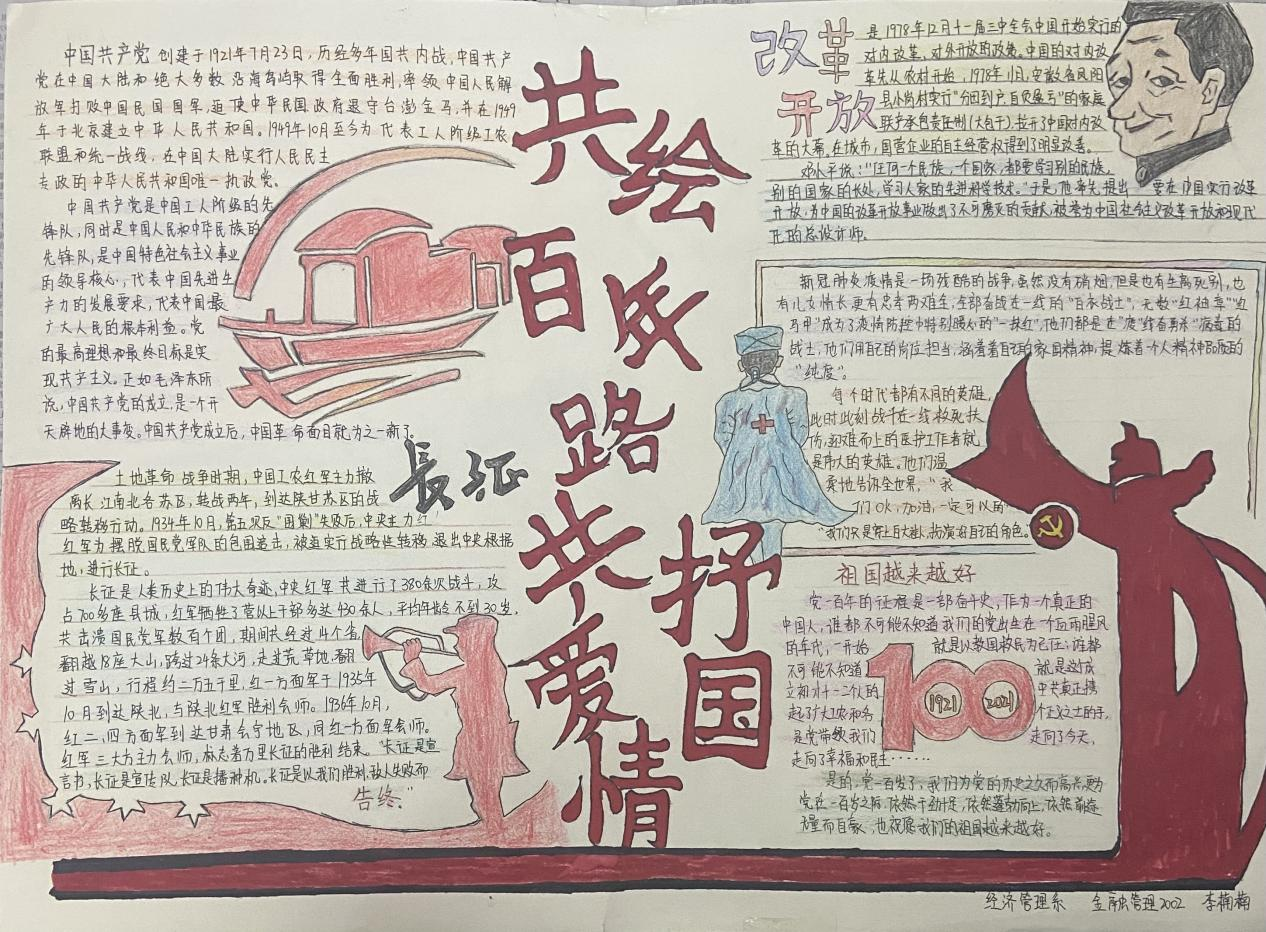 中国共产党 创建于1921年7月23日，历经多年国共内战，中国共产
党在中国大陆和绝大多数沿海岛屿取得全面胜利，率领中国人民解
放军打败中国民国国军，迫使中华民国政府退守台澎金马，并在1949
年于北京建立中华人民共和国。1949年10月至今为代表工人阶级工农
联盟和统一战线，在中国大陆实行人民民主
专政的中华人民共和国唯一执政党。
中国共产党是中国工人阶级的先
锋队，同时是中国人民和中华民族的
先锋队，是中国特色社会主义事业
的领导核心，代表中国先进生
产力的发展要求，代表中国最
广大人民的根本利益。党
的最高理想和最终目标是实
现共产主义。正如毛泽东所
说，中国共产党的成立，是一个开
天辟地的大事变。中国共产党成立后，中国革命面目就为之一新了。
長征
土地革命战争时期，中国工农红军主力撤
离长江南北各苏区，转战两年，到达陕甘苏区的战
略转移行动。1934年10月，第五次反"围剿"失败后，中央主力红
红军为摆脱国民党军队的包围追击，被迫实行战略性转移，退出中央根据
地，进行长征。
长征是人类历史上的伟大奇迹，中央红军共进行了380余次战斗，攻
占700多座县城，红军牺牲了营以上干部多达430余人，平均年龄不到30岁，
共击溃国民党军数百个团，期间共经过14个省，
翻越18座大山，跨过24条大河，走过荒草地，翻
过雪山，行程约二万五千里，红一方面军于1935年
10月到达陕北，与陕北红军胜利会师。1936年10月，
红二、四方面军到达甘肃会宁地区，同红一方面军会师。
红军三大方主力会师，标志着万里长征的胜利结束。"长征是宣
言书，长征是宣传队，长征是播种机。长征是以我们胜利，敌人失败而
告终。"
共绘
百年
路
共抒
爱国
情
改革
开放
是1978年12月十一届三中全会中国开始实行的
对内改革、对外开放的政策。中国的对内改
革先从农村开始，1978年11月，安徽省凤阳
县小岗村实行"分田到户，自负盈亏"的家庭
联产承包责任制（大包干），拉开了中国对内改
革的大幕。在城市，国营企业的自主经营权得到了明显改善。
邓小平说："任何一个民族，一个国家，都要学习别的民族，
别的国家的长处，学习人家的先进科学技术。"于是，他率先提出 要在中国实行改革
开放，为中国的改革开放事业做出了不可磨灭的贡献，被誉为中国社会主义改革开放和现代
化的总设计师。
新冠肺炎疫情是一场残酷的战争，虽然没有硝烟，但是也有生离死别，也
有儿女情长，更有忠孝两难全，全部奋战在一线的"白衣战士"，无数"红袖章""红
马甲"成为了疫情防控中特别暖心的"一抹红"，他们都是在"疫"线奋勇杀"病毒的
战士，他们用自己的岗位担当，涵养着自己的家国精神，提炼着个人精神品质的
"纯度"。
每个时代都有不同的英雄，
此时此刻战斗在一线救死扶
伤，迎难而上的医护工作者就
是伟大的英雄。他们温
柔地告诉全世界，"我
们OK，加油，一定可以的"
"我们只是穿上白大褂，扮演好自己的角色。
祖国越来越好
党一百年的征程是一部奋斗史，作为一个真正的
中国人，谁都不可能不知道我们的党出生在一个血雨腥风
的年代，一开始 就是以救国救民为己任；谁都
不可能不知道 就是这成
立初才十二个伙的 中共真正携
起了广大工农和各 个正义之士的手，
是党带领我们 走向了今天，
走向了幸福和民主……
100
1921 2021
是的，党一百岁了，我们为党的历史之久而高兴，更为
党在一百岁之后，依然干劲十足，依然蓬勃向上，依然前途
无量而自豪，也祝愿我们的祖国越来越好。
经济管理系 金融管理2002 李楠楠